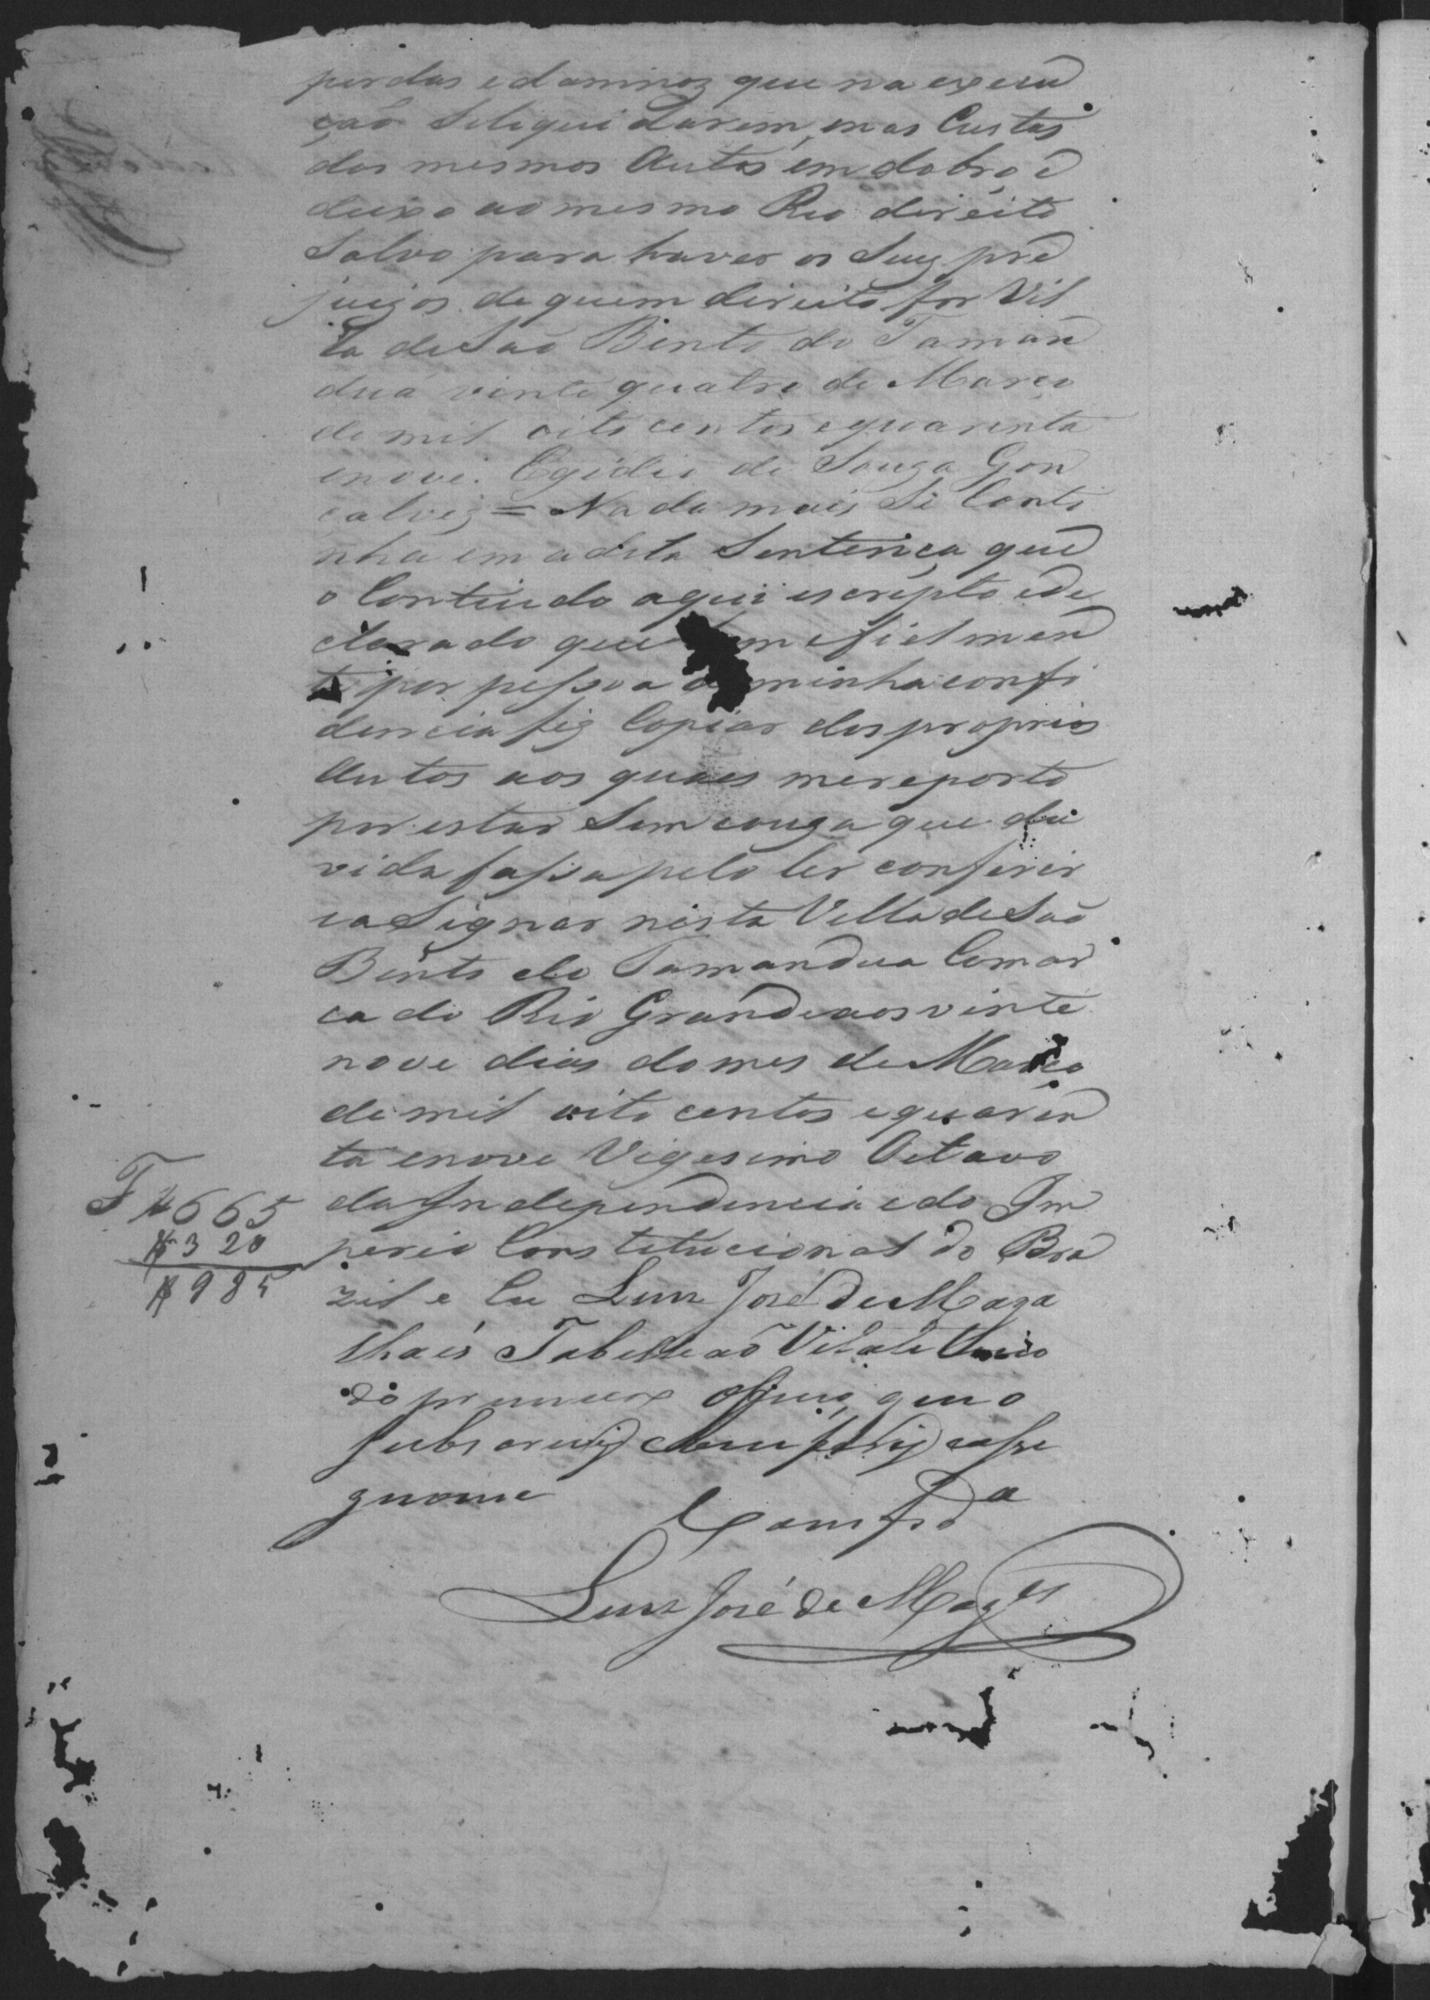 perdas e damnos que na execu
ção Seliquidarem, e nas Custas
dos mesmos Autos em dobro, e
deixo ao mesmo Reo direito
Salvo para haver os Seuz pre
juizos de quem direito for Vil
la deSaõ Bento do Taman
duá vinte quatro de Março
de mil oito centos e quarenta
enove. Egidio de Souza Gon
calvez = Nada mais Se Conti
nha em adita Sentença que
o Contiudo aqui escripto ede
clarado que bem e fielmen
te por pessoa de minha confi
dencia fiz Copiar dos proprios
Autos aos quaes mereporto
por estar Sem couza que du
vida fassa pelo ler conferir
eaSignar nesta Villa de Saõ
Bento do Tamandua Comar
ca do Rio Grande aos vinte
nove dias do mes de Março
de mil oito centos e quaren
ta enove Vigesimo Oitavo
da Independencia e do Im
perio Constitucional do Bra
zil e Eu Luiz José de Maga
lhaẽs Tabelleaõ Vitalicio
do primeiro officio, que o
Subscrevy conferij e asse
gnome
F #665
#320
#985
Comf.da
Luiz José de Mag.es